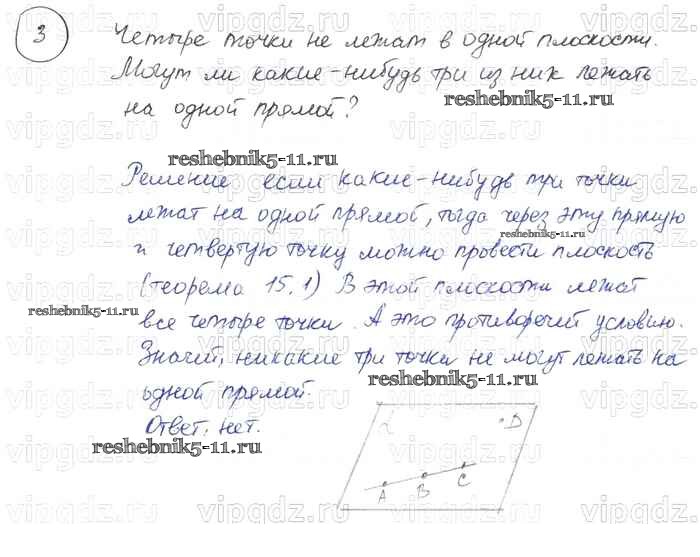 3
Четыре точки не лежат в одной плоскости.
Могут ли какие-нибудь три из них лежать
на одной прямой?
reshebnik5-11.ru
reshebnik5-11.ru
Решение если какие-нибудь три точки
лежат на одной прямой, тогда через эту прямую
reshebnik5-11.ru
и четвертую точку можно провести плоскость
(теорема 15.1) В этой плоскости лежат
reshebnik5-11.ru
все четыре точки. А это противоречит условию.
Значит, никакие три точки не могут лежать на
reshebnik5-11.ru
одной прямой.
Ответ: нет.
reshebnik5-11.ru
α
D
A B C
vipgdz.ru vipgdz.ru vipgdz.ru vipgdz.ru